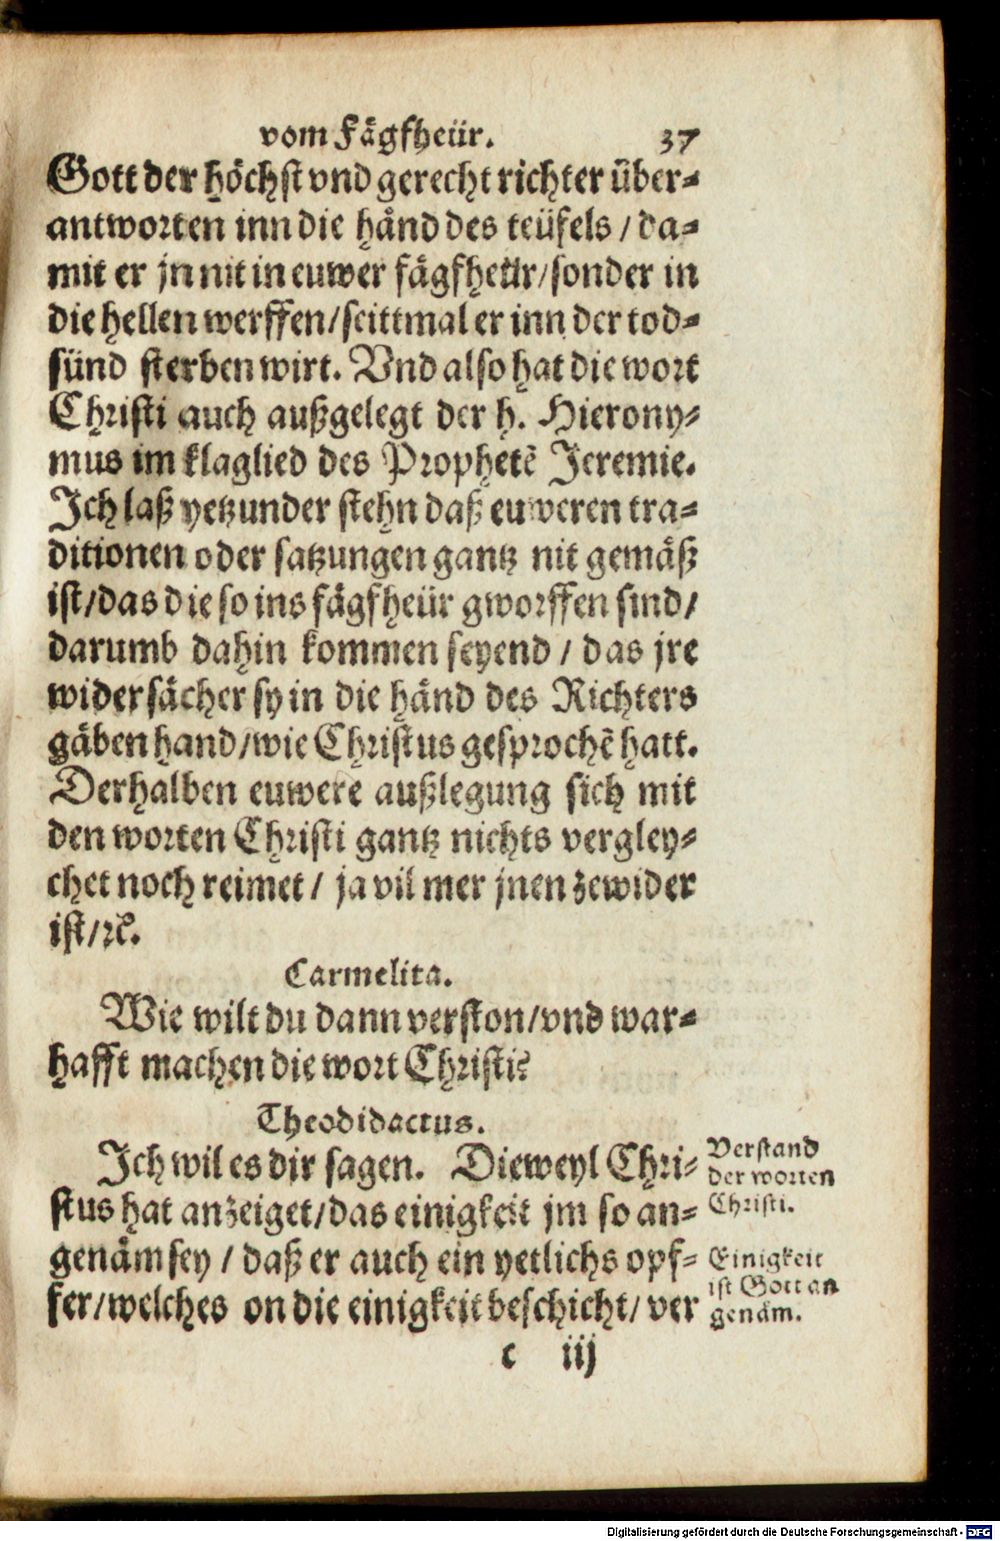 vom Fägfheür. 37
Gott der höchst vnd gerecht richter über⸗
antworten inn die händ des teüfels / da⸗
mit er jn nit in euwer fägfheür / sonder in
die hellen werffen / seittmal er inn der tod⸗
sünd sterben wirt. Vnd also hat die wort
Christi auch außgelegt der h. Hierony⸗
mus im klaglied des Prophetē Jeremie.
Ich laß yetzunder stehn daß euweren tra⸗
ditionen oder satzungen gantz nit gemäß
ist / das die so ins fägfheür gworffen sind /
darumb dahin kommen seyend / das jre
widersächer sy in die händ des Richters
gäben hand / wie Christus gesprochē hatt.
Derhalben euwere außlegung sich mit
den worten Christi gantz nichts vergley⸗
chet noch reimet / ja vil mer jnen zewider
ist / ꝛc.
Carmelita.
Wie wilt du dann verston / vnd war⸗
hafft machen die wort Christi?
Theodidactus.
Ich wil es dir sagen. Dieweyl Chri⸗
stus hat anzeiget / das einigkeit jm so an⸗
genäm sey / daß er auch ein yetlichs opf⸗
fer / welches on die einigkeit beschicht / ver
Verstand
der worten
Christi.
Einigkeit
ist Gott an
genäm.
c iij
Digitalisierung gefördert durch die Deutsche Forschungsgemeinschaft - DFG